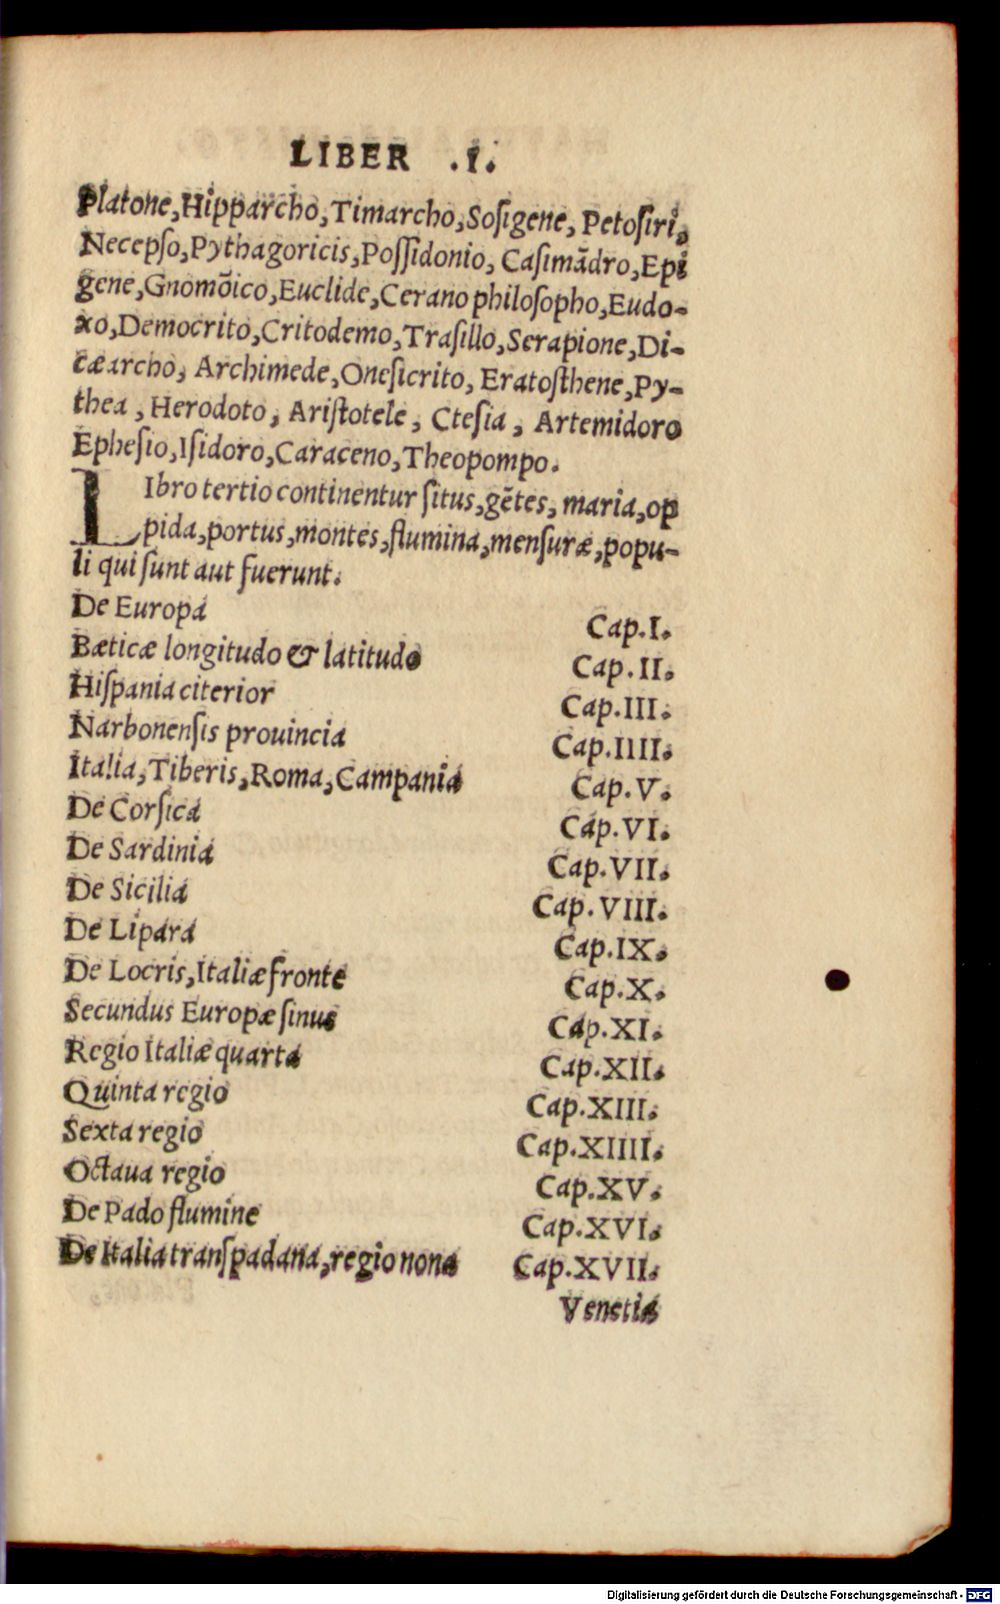 LIBER .I.
Platone,Hipparcho,Timarcho,Soſigene, Petoſiri,
Necepſo,Pythagoricis,Poſſidonio, Caſimādro,Epi
gene,Gnomōico,Euclide,Cerano philoſopho,Eudo-
xo,Democrito,Critodemo,Traſillo,Serapione,Di-
cæarcho, Archimede,Oneſicrito, Eratoſthene,Py-
thea, Herodoto, Ariſtotele, Cteſia, Artemidoro
Epheſio,Iſidoro,Caraceno,Theopompo.
LIbro tertio continentur ſitus,gētes, maria,op
pida,portus,montes,flumina,menſuræ,popu-
li qui ſunt aut fuerunt.
De Europa Cap.I.
Bæticæ longitudo & latitudo Cap.II.
Hiſpania citerior Cap.III.
Narbonenſis prouincia Cap.IIII.
Italia,Tiberis,Roma,Campania Cap.V.
De Corſica Cap.VI.
De Sardinia Cap.VII.
De Sicilia Cap.VIII.
De Lipara Cap.IX.
De Locris,Italiæ fronte Cap.X.
Secundus Europæ ſinus Cap.XI.
Regio Italiæ quarta Cap.XII.
Quinta regio Cap.XIII.
Sexta regio Cap.XIIII.
Octaua regio Cap.XV.
De Pado flumine Cap.XVI.
De Italia tranſpadana,regio nona Cap.XVII.
Venetia
Digitalisierung gefördert durch die Deutsche Forschungsgemeinschaft - DFG